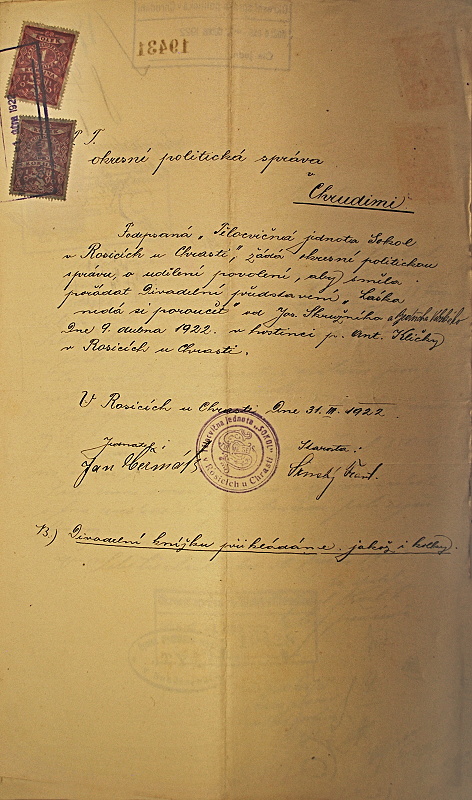 19431
T. T.
okresní politická správa
v
Chrudimi
Podepsaná „Tělocvičná jednota Sokol
v Rosicích u Chrasti", žádá okresní politickou
správu, o udělení povolení, aby směla
pořádat Divadelní představení „Láska
nedá se poroučet" od Jos. Skružného a
Dne 9. dubna 1922. v hostinci p. Ant. Kličky
v Rosicích u Chrasti.
V Rosicích u Chrasti, Dne 31. III. 1922.
Jednatel: Starosta:
Jan
Tělocvičná jednota „SOKOL"
v Rosicích u Chrasti
B.) Divadelní knížku přikládáme jakož i kolky.